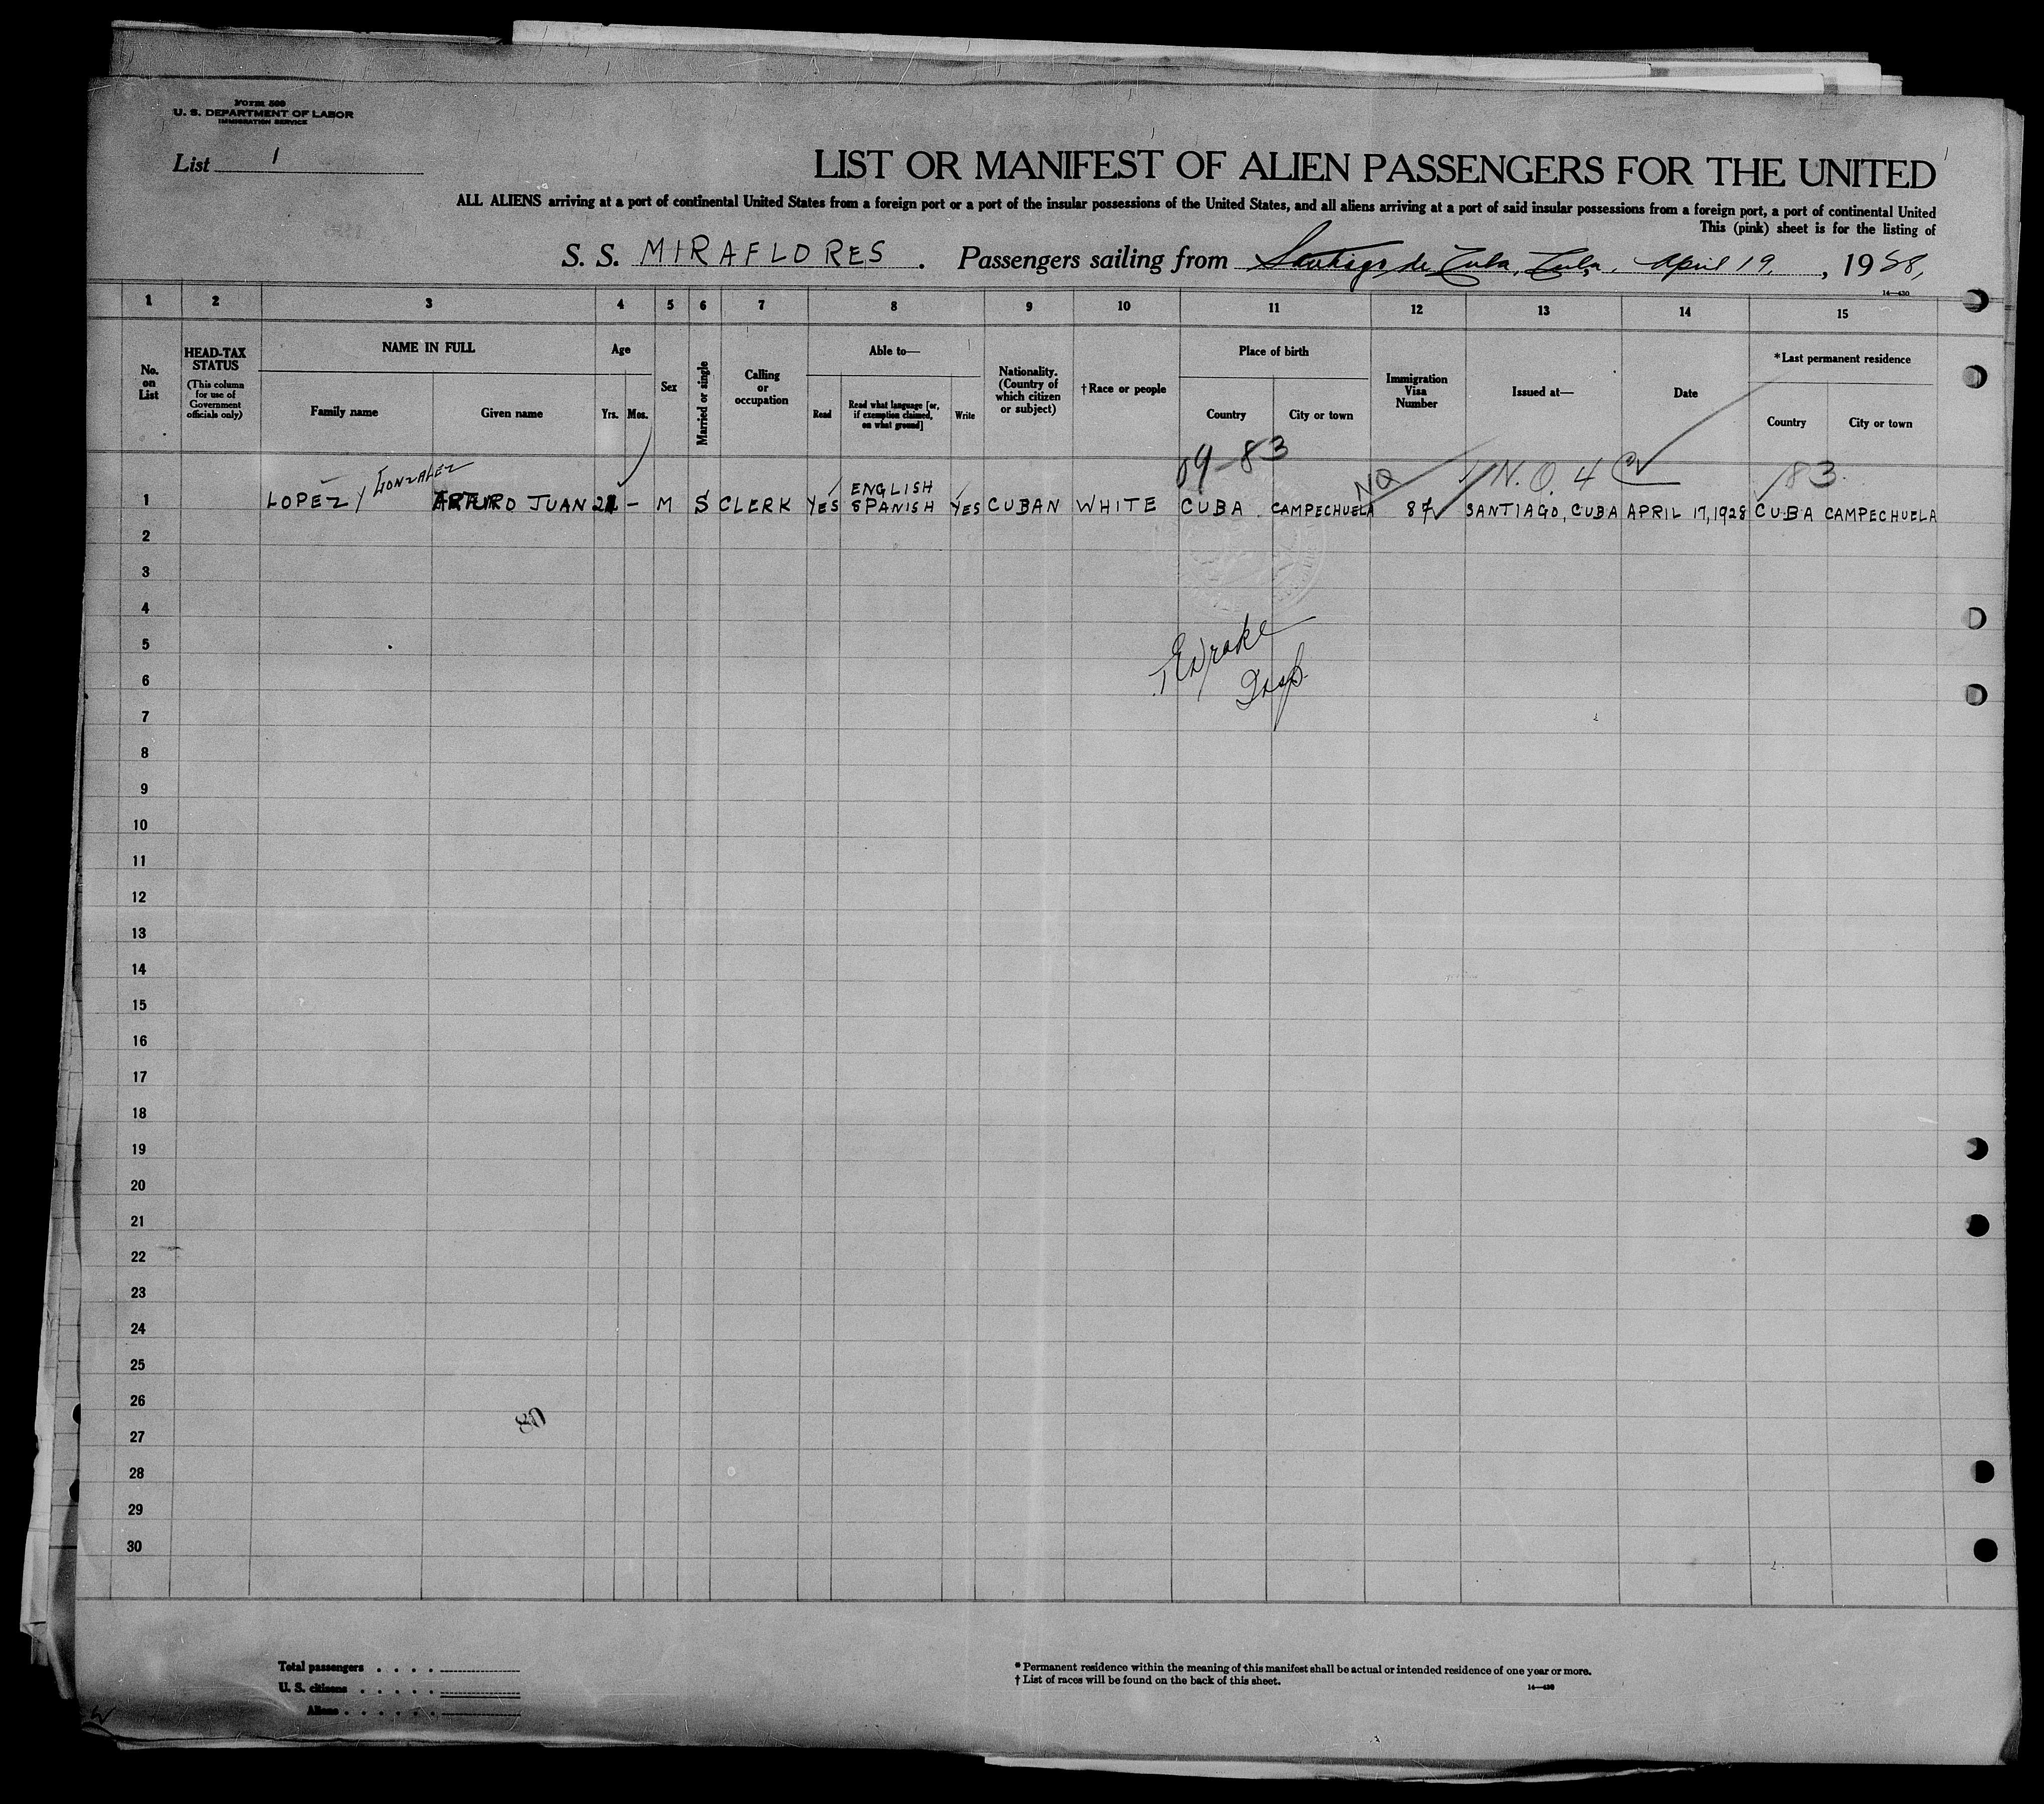 Form 500
U. S. DEPARTMENT OF LABOR
IMMIGRATION SERVICE
List 1
LIST OR MANIFEST OF ALIEN PASSENGERS FOR THE UNITED
ALL ALIENS arriving at a port of continental United States from a foreign port or a port of the insular possessions of the United States, and all aliens arriving at a port of said insular possessions from a foreign port, a port of continental United
This (pink) sheet is for the listing of
S. S. MIRAFLORES. Passengers sailing from Santiago de Cuba, Cuba, April 19, 1928,
14—430
1 2 3 4 5 6 7 8 9 10 11 12 13 14 15
No. on List
HEAD-TAX STATUS
(This column for use of Government officials only)
NAME IN FULL
Family name
Given name
Age
Yrs. Mos.
Sex
Married or single
Calling or occupation
Able to—
Read
Read what language [or, if exemption claimed, on what ground]
Write
Nationality. (Country of which citizen or subject)
†Race or people
Place of birth
Country
City or town
Immigration Visa Number
Issued at—
Date
*Last permanent residence
Country
City or town
09-83
NQ
N.Q. 4
83
1 LOPEZ y GONZALEZ ARTURO JUAN 21 - M S CLERK YES ENGLISH SPANISH YES CUBAN WHITE CUBA CAMPECHUELA 87 SANTIAGO, CUBA APRIL 17, 1928 CUBA CAMPECHUELA
2
3
4
5
Drake
6
Insp.
7
8
9
10
11
12
13
14
15
16
17
18
19
20
21
22
23
24
25
26
27
28
29
30
Total passengers
U. S. citizens
Aliens
*Permanent residence within the meaning of this manifest shall be actual or intended residence of one year or more.
†List of races will be found on the back of this sheet.
14—430